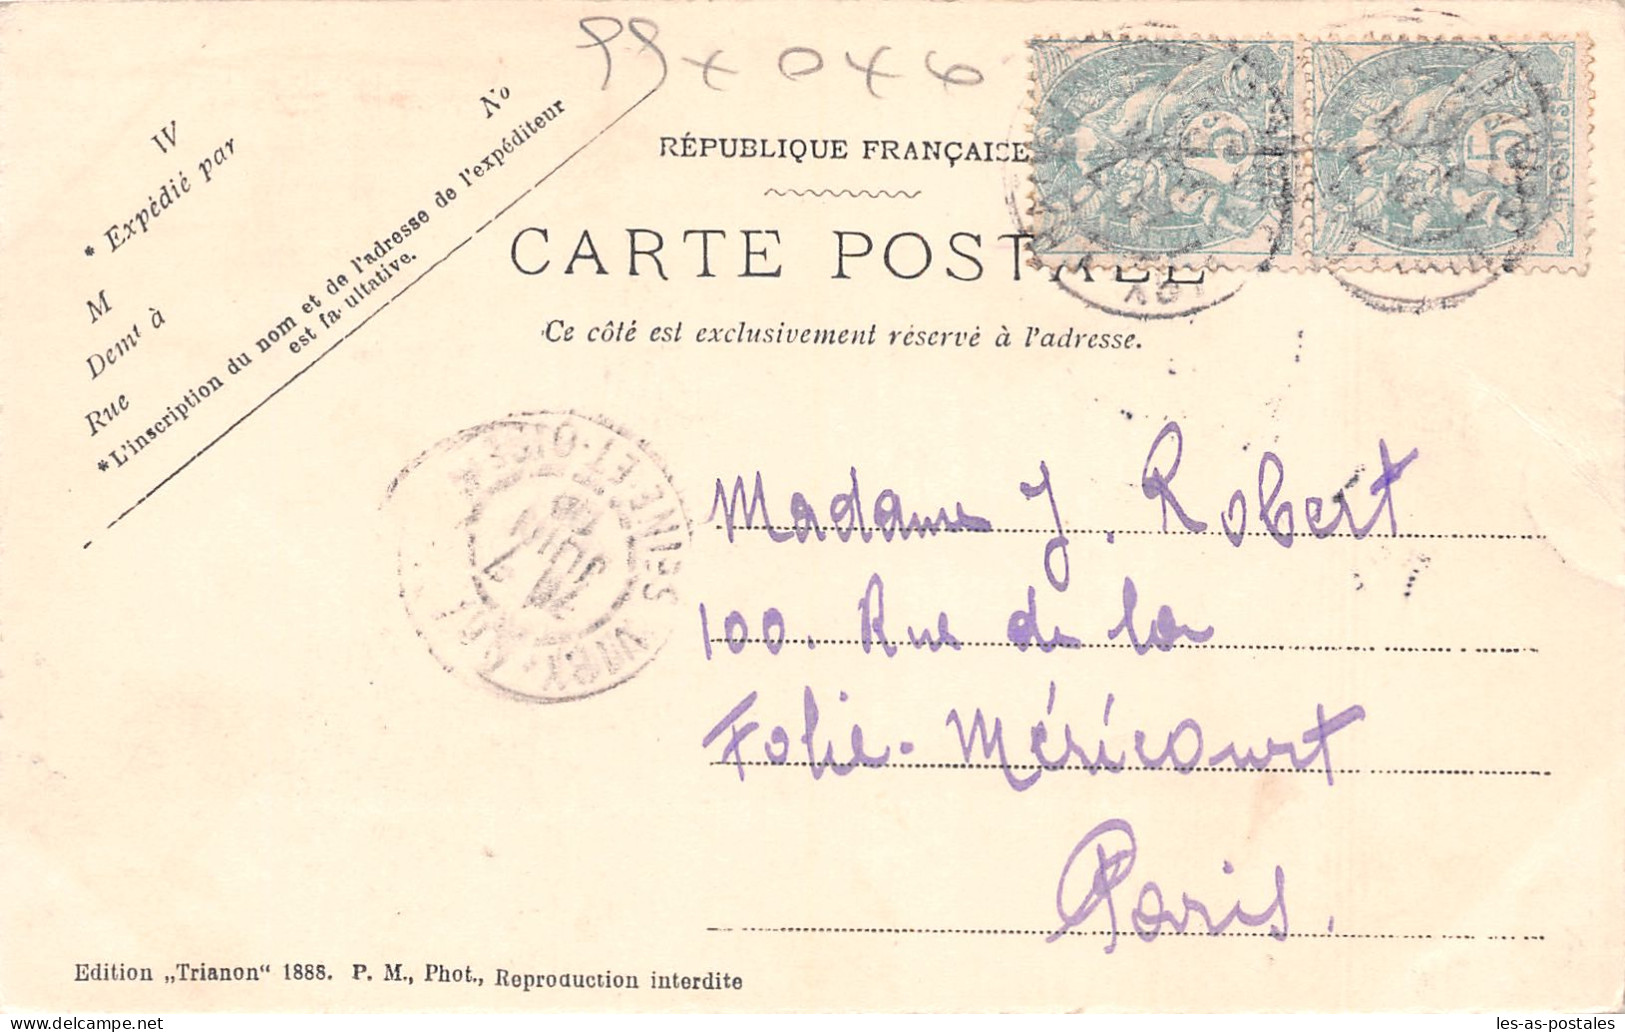 99 + 046
RÉPUBLIQUE FRANÇAISE
CARTE POSTALE
Ce côté est exclusivement réservé à l'adresse.
No
W
* Expédié par
M
Demt à
Rue
* L'inscription du nom et de l'adresse de l'expéditeur
est fa ultative.
5
5
POSTES
SEINE-ET-OISE
JUIN
Madame J. Robert
100. Rue de la
Folie-Méricourt
Paris.
Edition „Trianon“ 1888. P. M., Phot., Reproduction interdite
les-as-postales